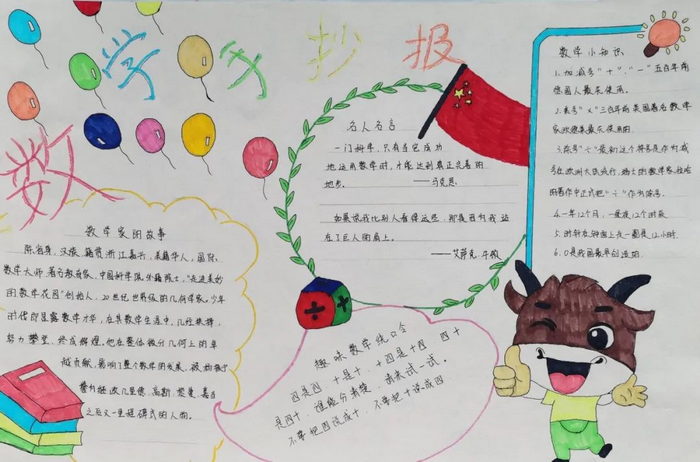 数学手抄报
数学家的故事
陈省身,汉族,籍贯浙江嘉兴,美籍华人,国际
数学大师、著名教育家、中国科学院外籍院士,“走进美妙
的数学花园”创始人,20世纪世界级的几何学家。少年
时代即显露数学才华,在其数学生涯中,几经抉择,
努力攀登,终成辉煌。他在整体微分几何上的卓
越贡献,影响了整个数学的发展,被杨振宁
誉为继欧几里德、高斯、黎曼、嘉当
之后又一里程碑式的人物。
名人名言
一门科学,只有当它成功
地运用数学时,才能达到真正完善的
地步。——马克思
如果说我比别人看得远些,那是因为我站
在了巨人的肩上。
——艾萨克·牛顿
趣味数学绕口令
四是四 十是十 十四是十四 四十
是四十,谁能分清楚,请来试一试。
不要把四说成十,不要把十说成四
数学小知识
1.加减号“+”,“-”五百年前
德国人最先使用。
2.乘号“×”三百年前英国著名数学
家欧德莱最先使用的
3.除号“÷”最新这个符号是作为减
号在欧洲大陆流行,瑞士的数学家拉哈
的著作中正式把“÷”作为除号
4.一年12个月,一昼夜12个时辰
5.时针在钟面上走一圈是12小时.
6.0是我国最早创造的.